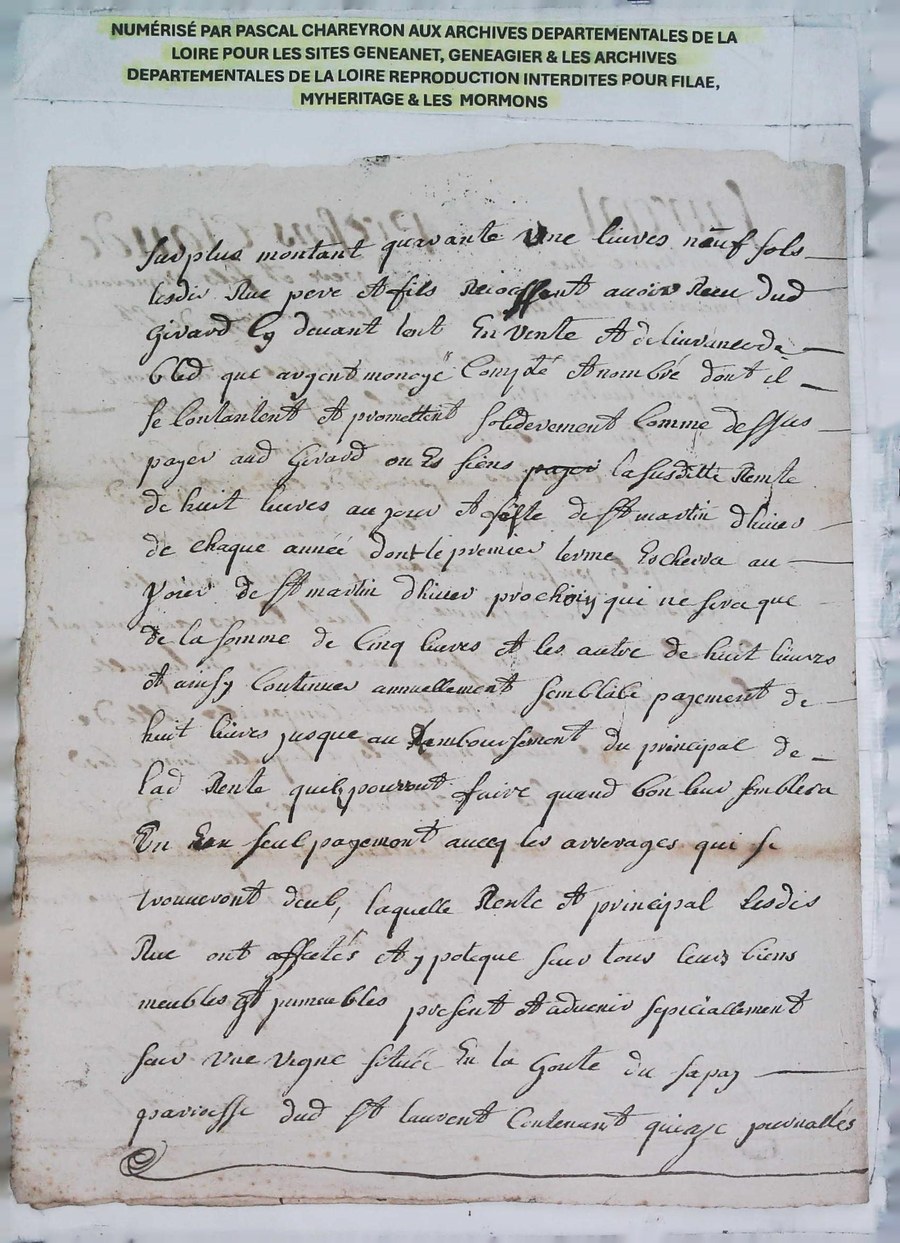 NUMÉRISÉ PAR PASCAL CHAREYRON AUX ARCHIVES DEPARTEMENTALES DE LA
LOIRE POUR LES SITES GENEANET, GENEAGIER & LES ARCHIVES
DEPARTEMENTALES DE LA LOIRE REPRODUCTION INTERDITES POUR FILAE,
MYHERITAGE & LES MORMONS
surplus montant quarante une livres neuf sols
lesdis Rue pere et fils avoir Receu dud
Girard Cy devant tent En vente et delivrance de
bled que argent monoyé Compté et nombré dont il
se Contantent et promettent soliderement Comme dessus
payer aud Girard ou Es siens payer la susditte Rente
de huit livres au jour et feste de st martin dhiver
de chaque année dont le premier terme Escherra au
jour de st martin dhiver prochain qui ne sera que
de la somme de Cinq livres et les autre de huit livres
et ainsy Continuer annuellement semblable payement de
huit livres jusque au Remboursement du principal de
lad Rente quils pourront faire quand bon leur semblera
En un seul payement avecq les arrerages qui se
trouveront deub, laquelle Rente et principal Lesdis
Rue ont affectés et ypoteque sur tous leurs biens
meubles et jmeubles present et advenir sepeciallement
sur une vigne située En la Goute du sapay
parroisse dud st laurent Contenant quinze